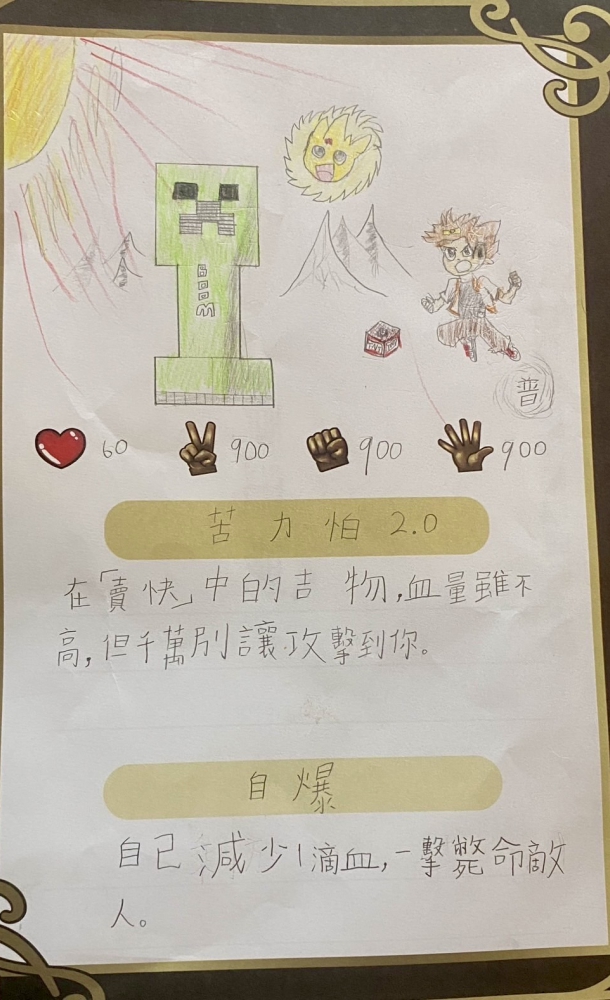 BOOM
普
60 900 900 900
苦力怕 2.0
在「賣快」中的吉 物,血量雖不
高,但千萬別讓攻擊到你。
自爆
自己減少1滴血,一擊斃命敵
人。